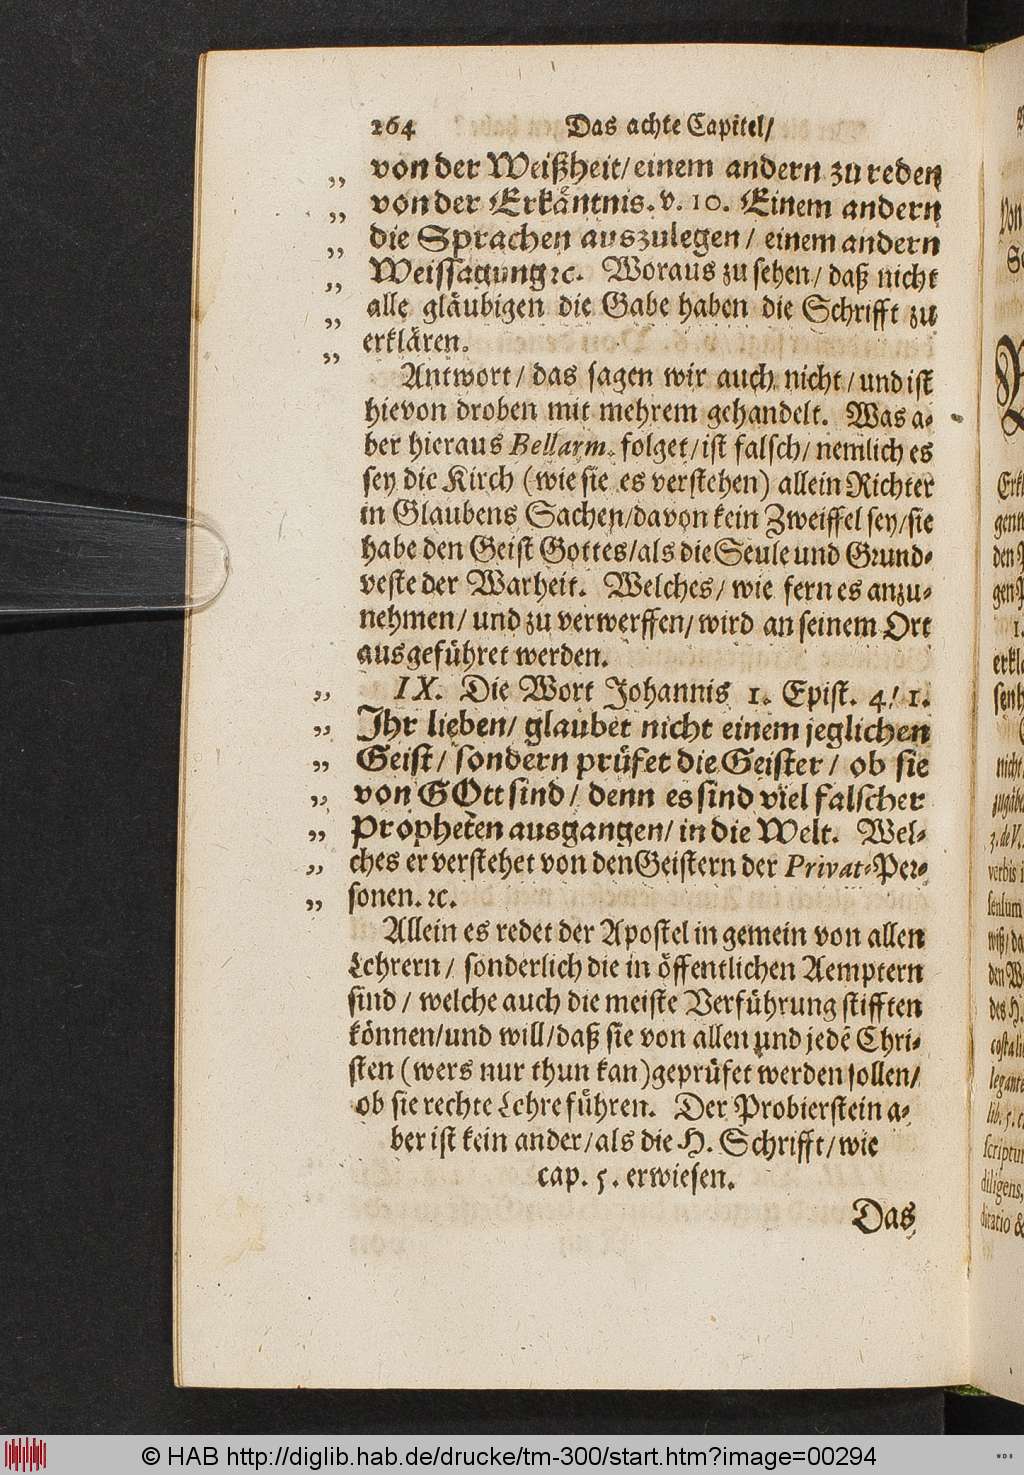 264 Das achte Capitel/
„ von der Weißheit/einem andern zu reden
„ von der Erkäntnis. v. 10. Einem andern
„ die Sprachen auszulegen/ einem andern
„ Weissagung ꝛc. Woraus zu sehen/ daß nicht
„ alle gläubigen die Gabe haben die Schrifft zu
„ erklären.
Antwort/ das sagen wir auch nicht/ und ist
hievon droben mit mehrem gehandelt. Was a-
ber hieraus Bellarm. folget/ist falsch/ nemlich es
sey die Kirch (wie sie es verstehen) allein Richter
in Glaubens Sachen/davon kein Zweiffel sey/sie
habe den Geist Gottes/als die Seule und Grund-
veste der Warheit. Welches/ wie fern es anzu-
nehmen/ und zu verwerffen/ wird an seinem Ort
ausgeführet werden.
„ IX. Die Wort Johannis 1. Epist. 4/ 1.
„ Ihr lieben/ glaubet nicht einem jeglichen
„ Geist/ sondern prüfet die Geister/ ob sie
„ von GOtt sind/ denn es sind viel falscher
„ Propheten ausgangen/ in die Welt. Wel-
„ ches er verstehet von den Geistern der Privat-Per-
„ sonen. ꝛc.
Allein es redet der Apostel in gemein von allen
Lehrern/ sonderlich die in öffentlichen Aemptern
sind/ welche auch die meiste Verführung stifften
können/und will/daß sie von allen und jedē Chri-
sten (wers nur thun kan) geprüfet werden sollen/
ob sie rechte Lehre führen. Der Probierstein a-
ber ist kein ander/als die H. Schrifft/ wie
cap. 5. erwiesen.
Das
© HAB http://diglib.hab.de/drucke/tm-300/start.htm?image=00294